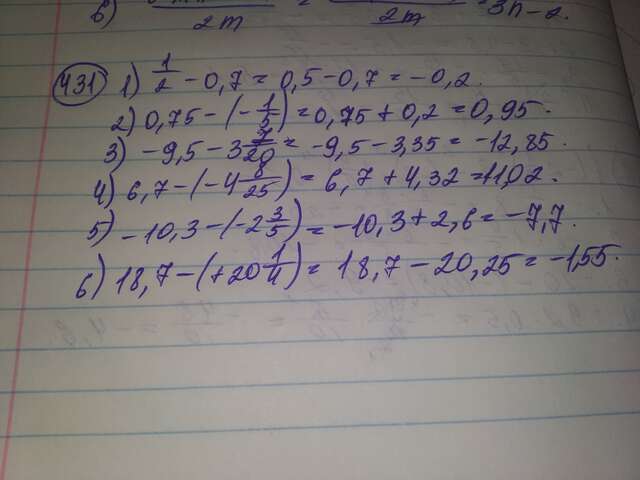 6) 2m = 2m = 3n-2.
431 1) 1/2 - 0,7 = 0,5 - 0,7 = -0,2.
2) 0,75 - (-1/5) = 0,75 + 0,2 = 0,95.
3) -9,5 - 3 7/20 = -9,5 - 3,35 = -12,85.
4) 6,7 - (-4 8/25) = 6,7 + 4,32 = 11,02.
5) -10,3 - (-2 3/5) = -10,3 + 2,6 = -7,7.
6) 18,7 - (+20 1/4) = 18,7 - 20,25 = -1,55.